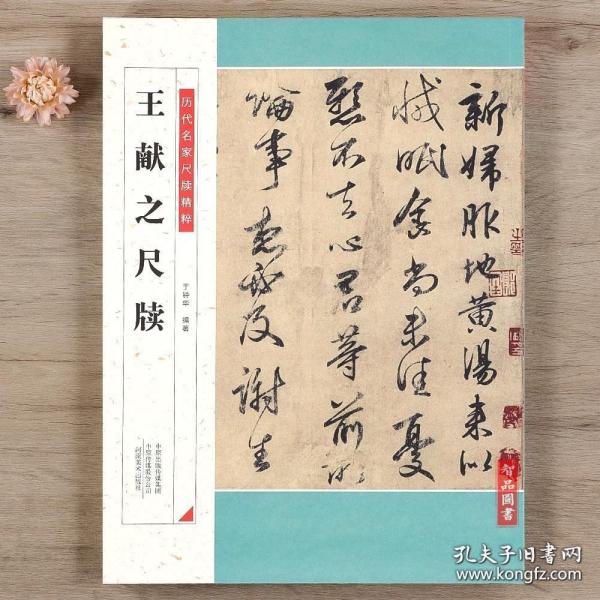 历代名家尺牍精粹
王献之尺牍
于钟华 编著
中原出版传媒集团
中原传媒股份公司
河南美术出版社
新婦服地黄湯来似
減眠食尚未佳憂
懸不去心君等前所
論事想必及謝生
智品圖書
孔夫子旧书网
www.kongfz.com